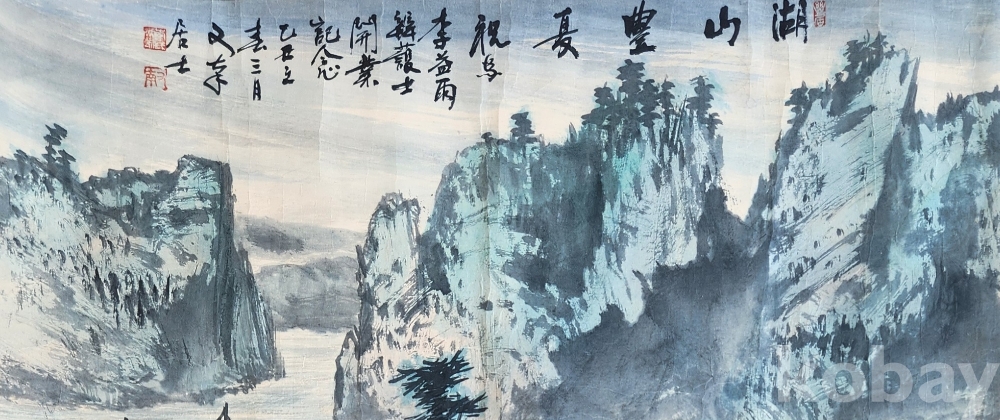 湖山豊夏
祝
李益雨
辯護士
開業
記念
乙丑之
春三月
居士
kobay